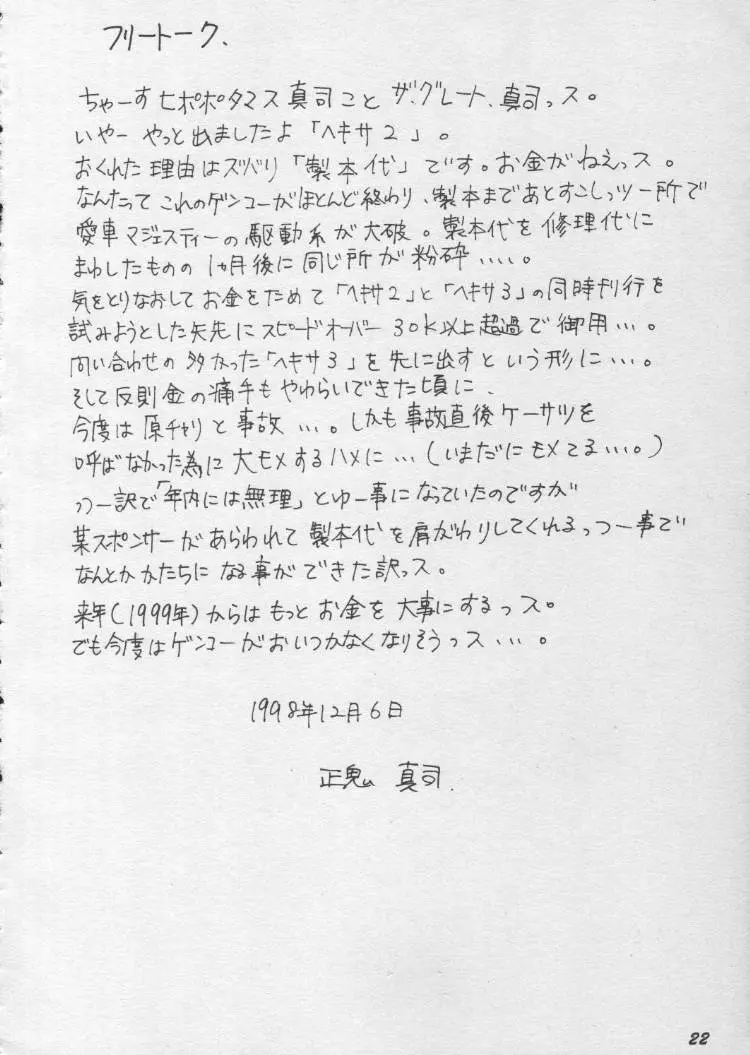 フリートーク、
ちゃーす ヒポポタマス 真司こと ザ・グレート、真司っス。
いやー やっと出ましたよ「ヘキサ2」。
おくれた理由はズバリ「製本代」です。お金がねえっス。
なんたって これのゲンコーがほとんど終わり、製本まであとすこしっツー所で
愛車マジェスティーの駆動系が大破。製本代を修理代に
まわしたものの 1ヵ月後に同じ所が粉砕‥‥。
気をとりなおしてお金をためて「ヘキサ2」と「ヘキサ3」の同時刊行を
試みようとした矢先にスピードオーバー 30k以上超過で御用…。
問い合わせの多かった「ヘキサ3」を先に出すという形に…。
そして反則金の痛手もやわらいできた頃に、
今度は原チャリと事故…。しかも事故直後ケーサツを
呼ばなかった為に大モメするハメに…(いまだにモメてる…。)
っつー訳で「年内には無理」とゆー事になっていたのですが
某スポンサーがあらわれて製本代を肩がわりしてくれるっつー事で
なんとかかたちになる事ができた訳っス。
来年(1999年)からはもっとお金を大事にするっス。
でも今度はゲンコーがおいつかなくなりそうっス…。
1998年12月6日
正鬼 真司.
22